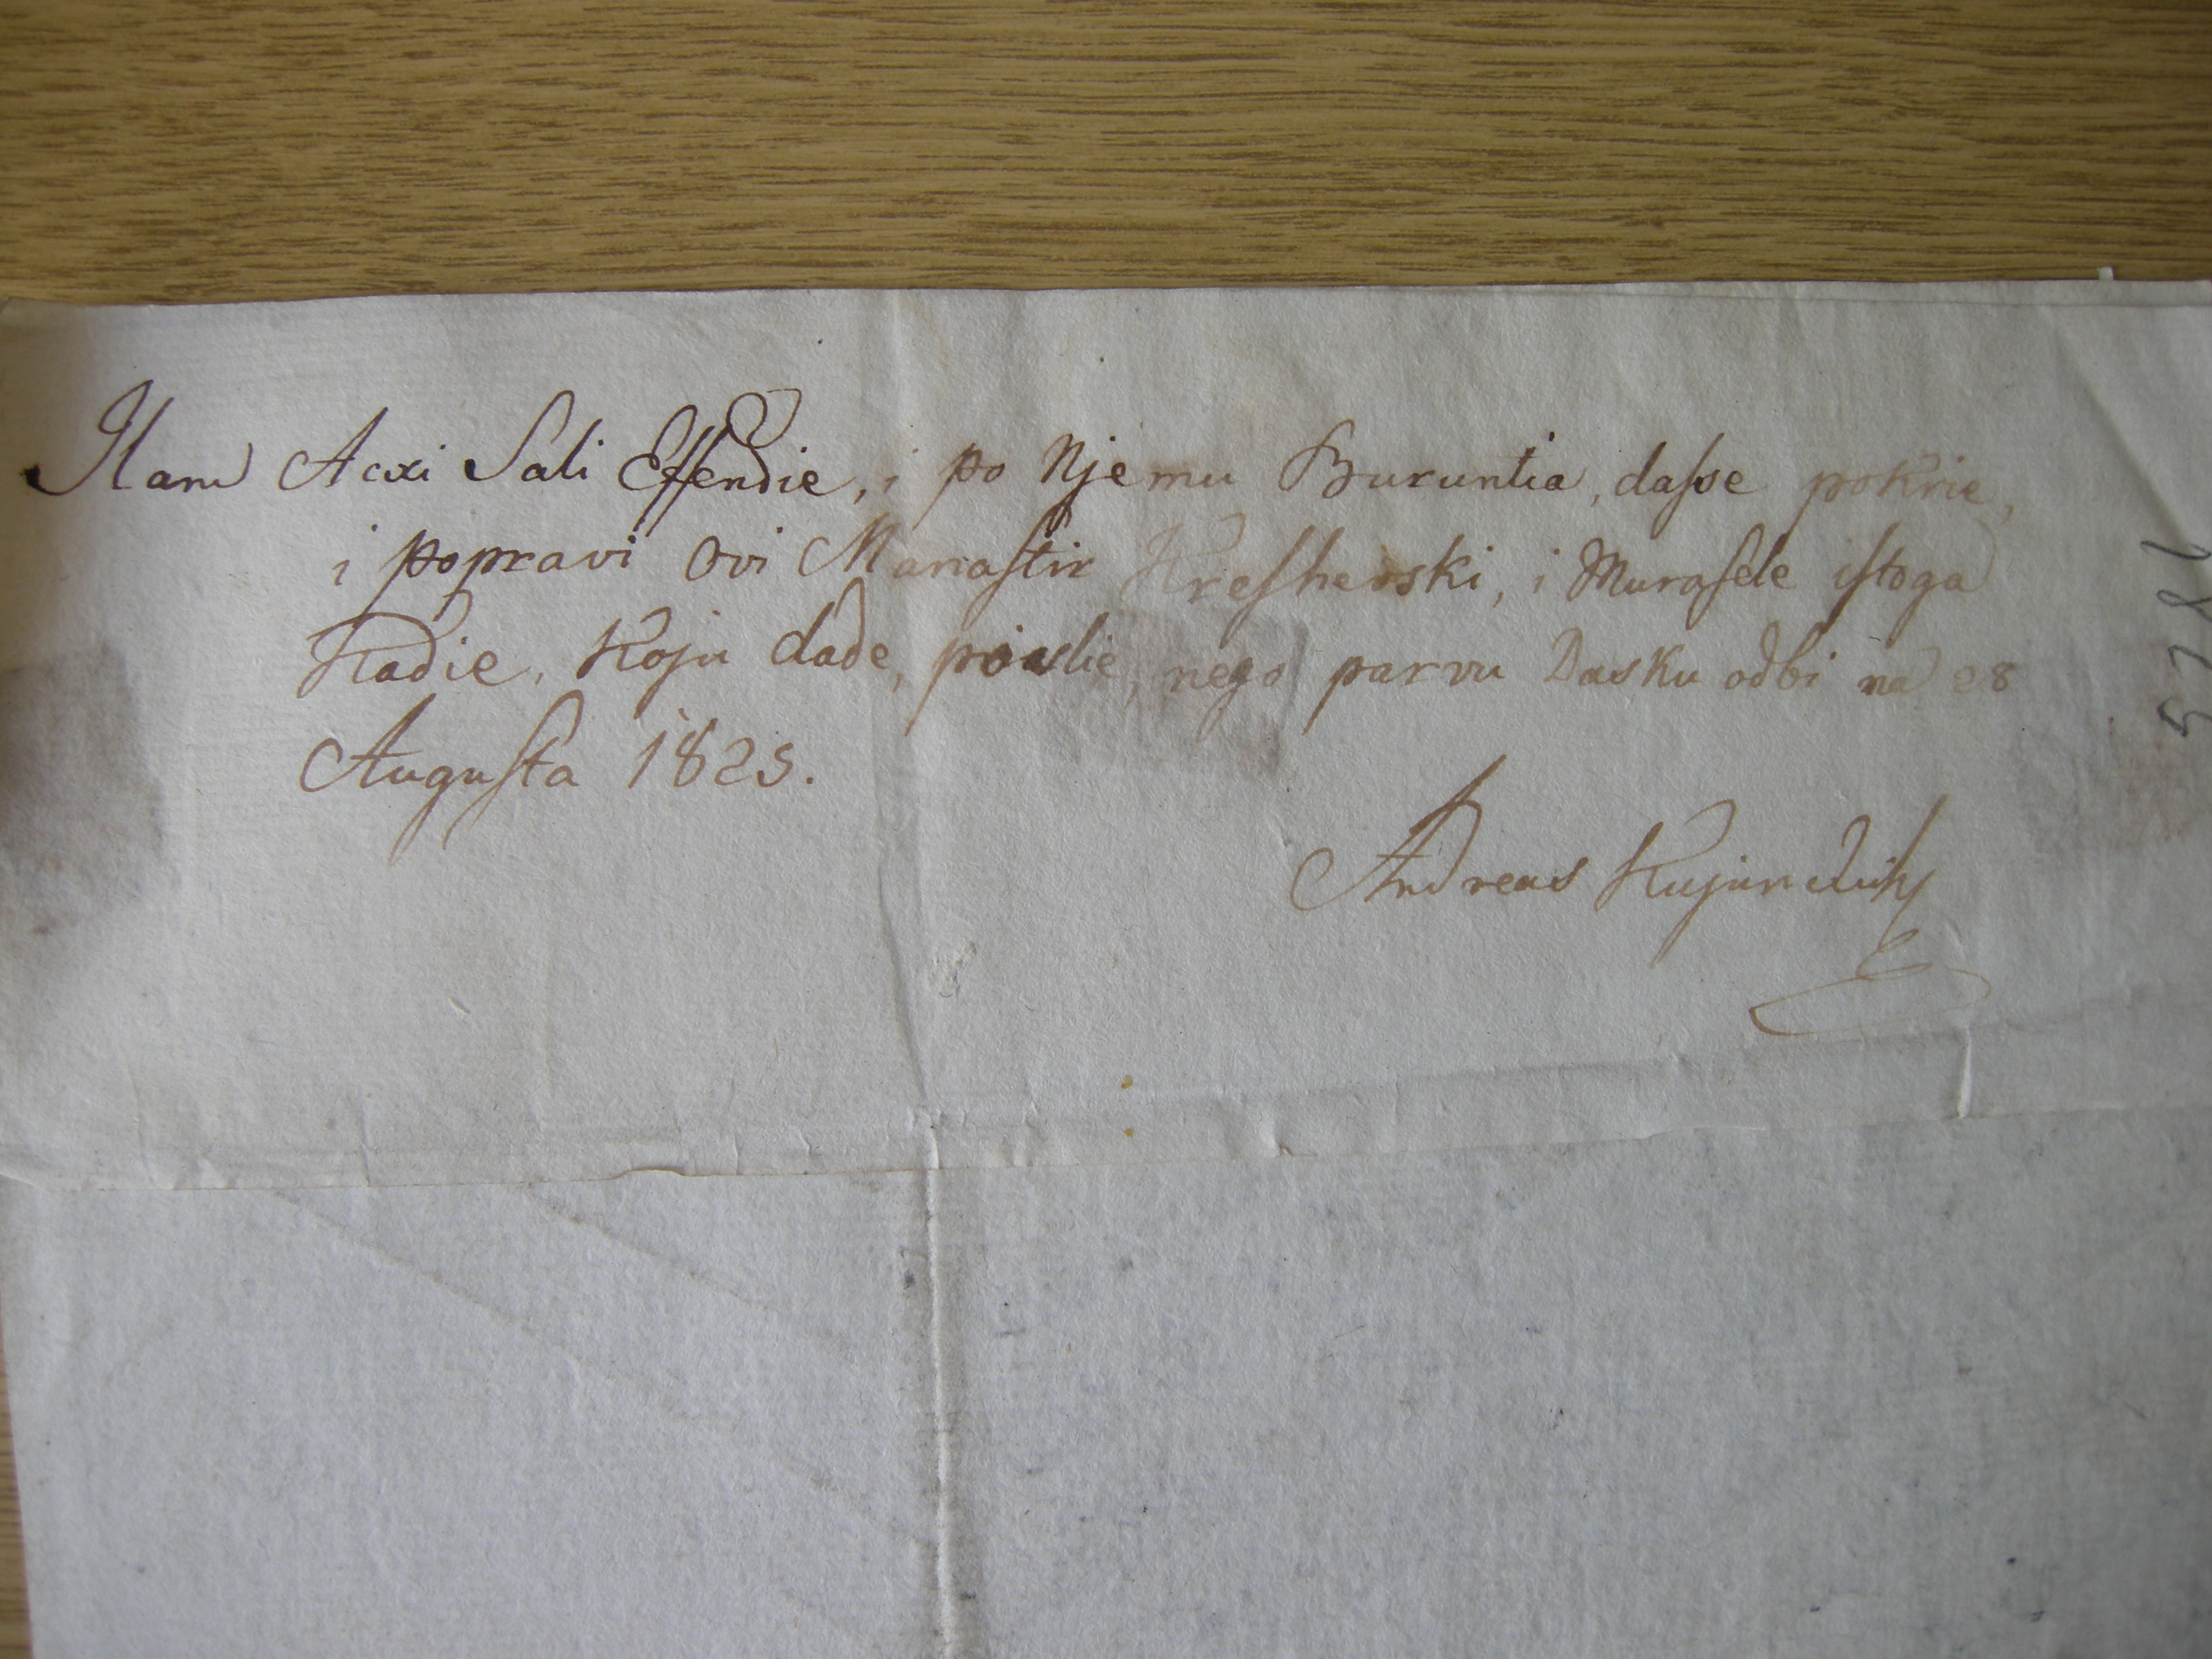 Ilam Acxi Sali Effendie, i po Njemu Buruntia, dasse pokrie,
i popravi Ovi Manastir Kreshevski, i Murasele istoga
Kadie, Koju dade, poslie, nego parvu Dasku odbi na 28
Augusta 1825.
Andreas Kujundxich